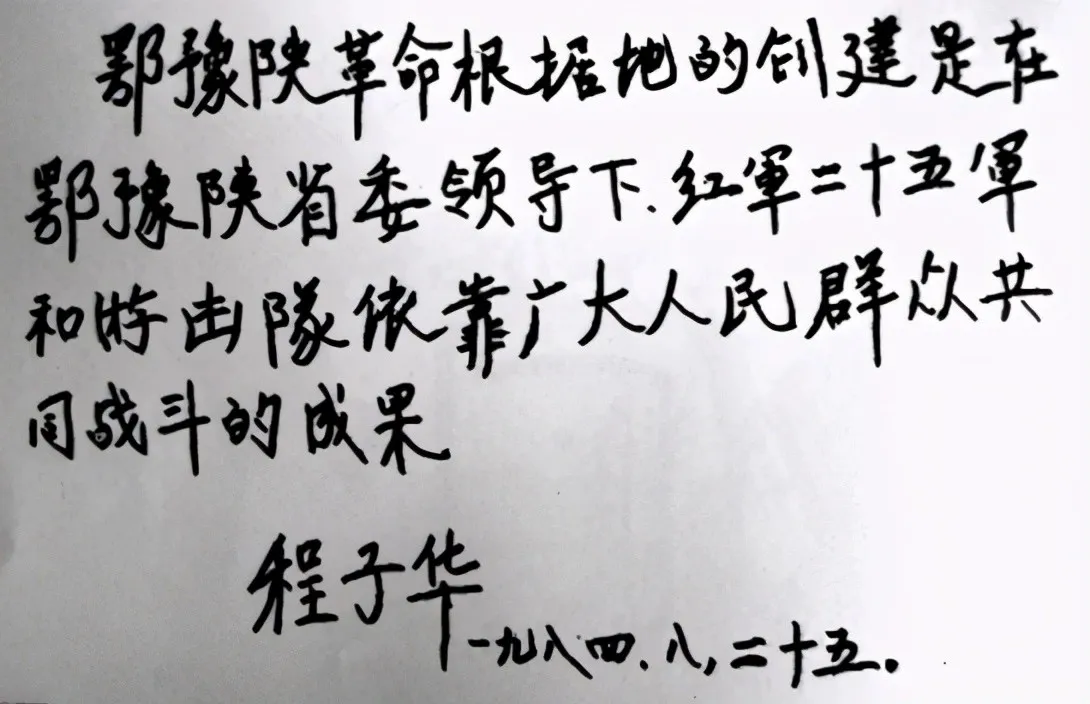 鄂豫陕革命根据地的创建是在
鄂豫陕省委领导下、红軍二十五軍
和游击隊依靠广大人民群众共
同战斗的成果
程子华
一九八四、八,二十五。